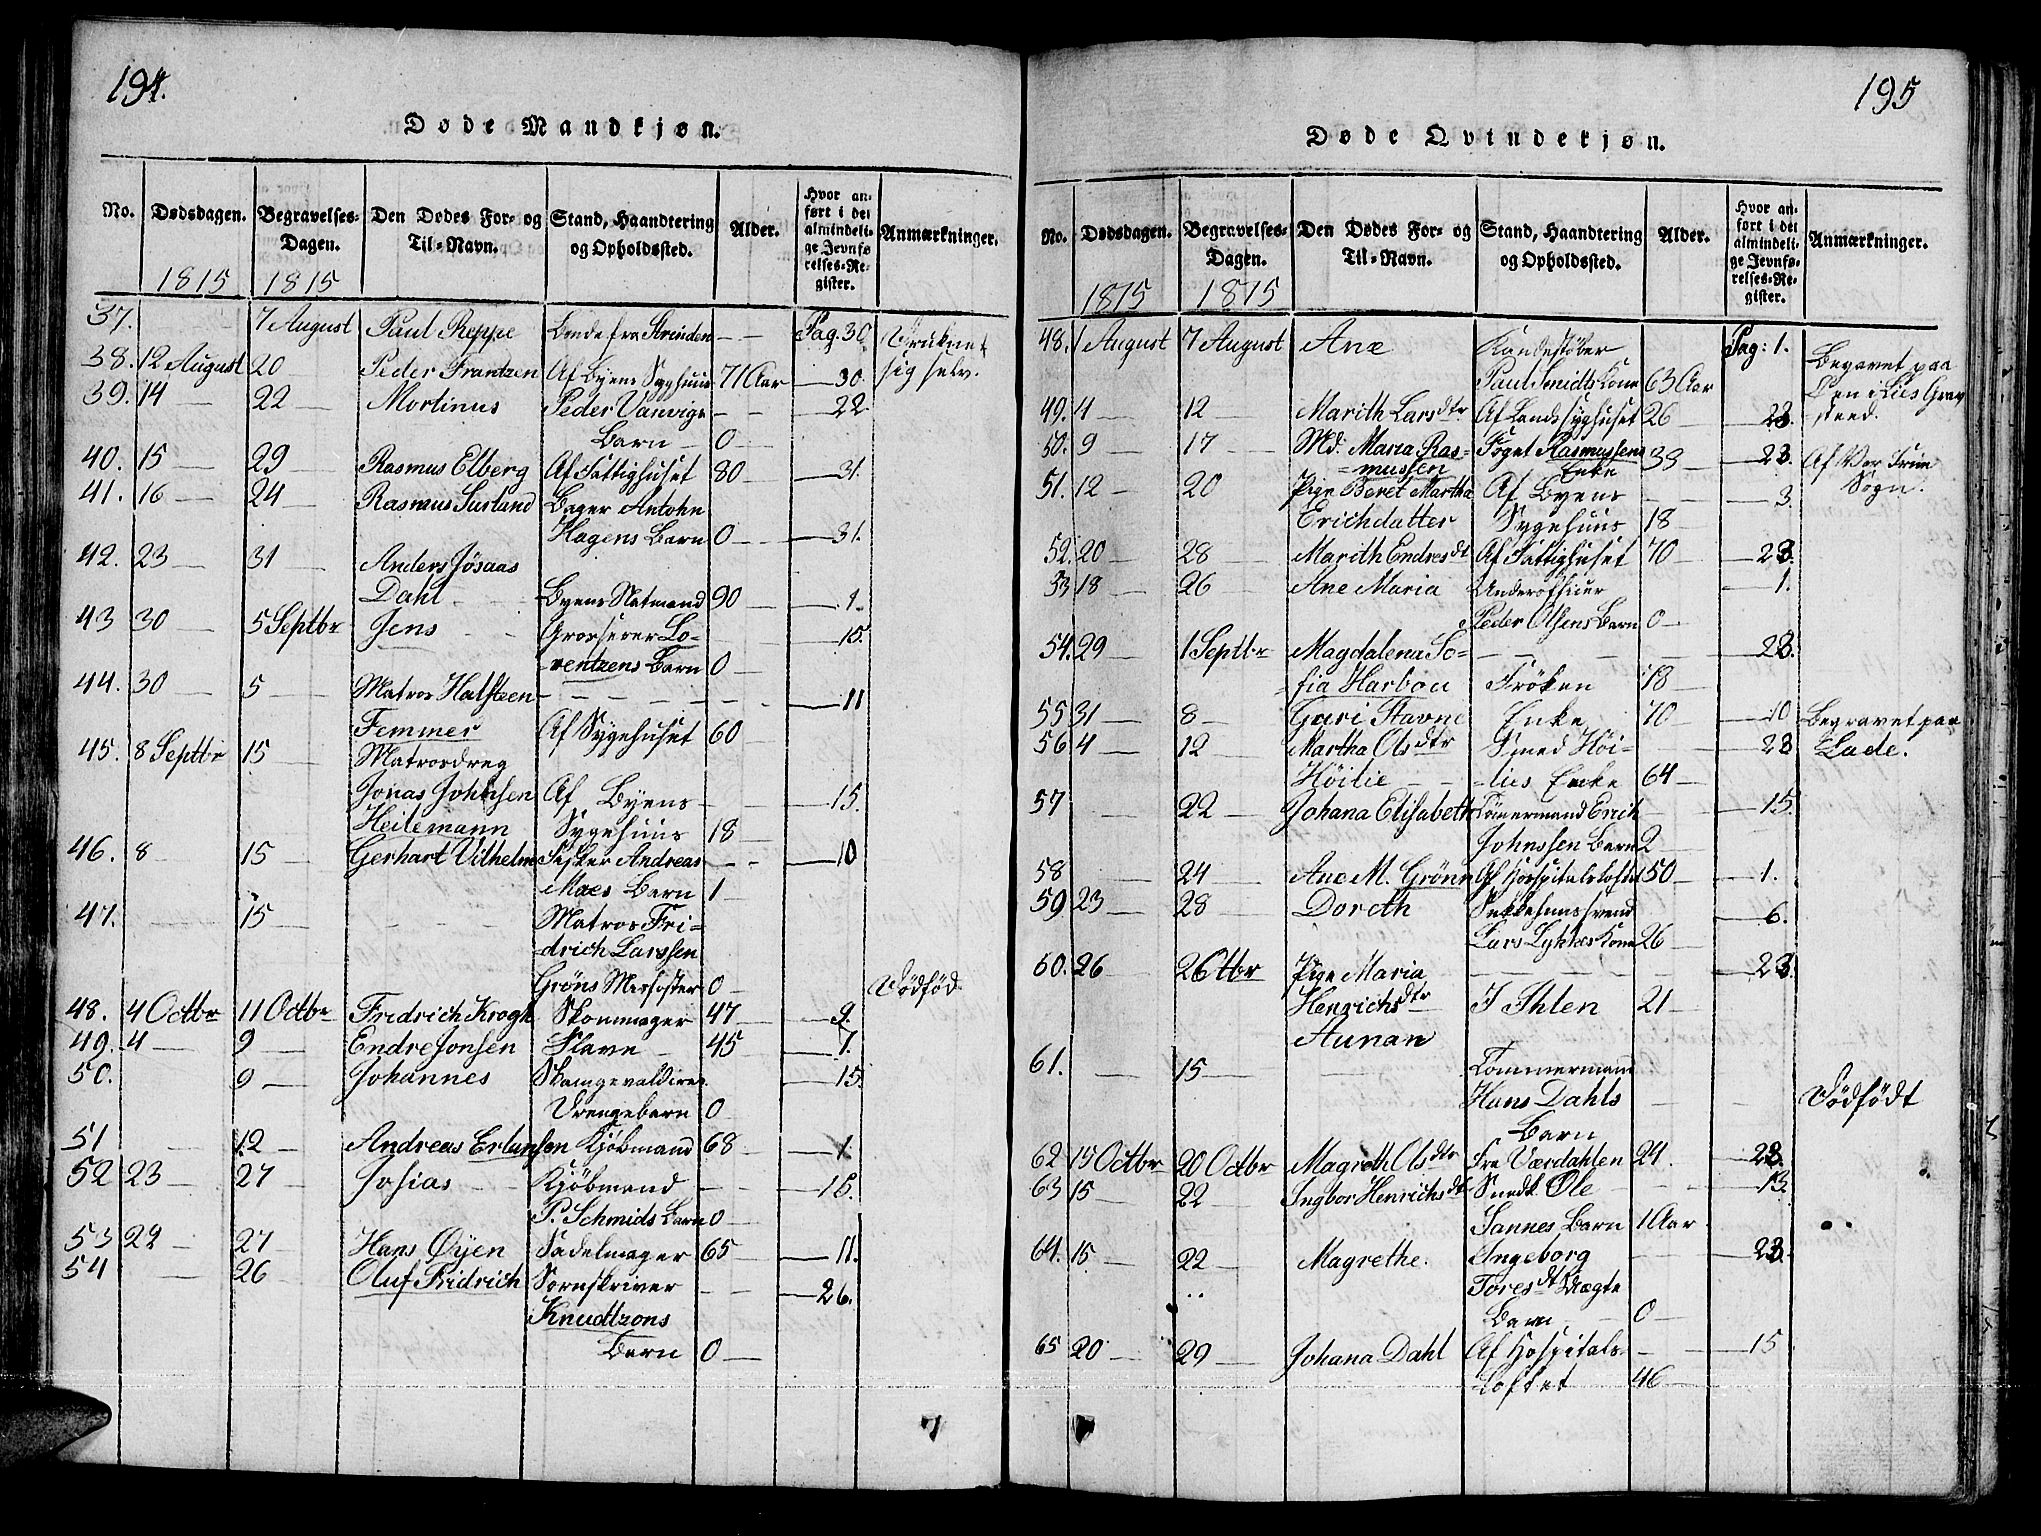 194.
Døde Mandkjøn.
No. Dødsdagen. Begravelses-Dagen. Den Dødes For- og Til-Navn. Stand, Haandtering og Opholdssted. Alder. Hvor anført i det almindelige Jevnførelses-Register. Anmærkninger.
1815 1815
37. 7 August Paul Reppe Bonde fra Strinden - - Pag. 30 Druknet
38. 12 August 20 — Peder Frantzen Af Byens Syghuus 71 Aar — 30. sig selv.
39. 14 — 22 — Mortinus Peder Vanvigs - - — 22
Barn — 0 —
40. 15 — 29 — Rasmus Elberg Af Fattighuset 80 — — 31.
41. 16 — 24 — Rasmus Surland Bager Antohn
Hagens Barn 0 — — 31.
42. 23 — 31 — Anders Jösaas
Dahl Byens Natmand 90 — — 1.
43 30 — 5 Septbr Jens Grosserer Lo- — 10.
rentzens Barn 0 —
44. 30 — 5 — Matros Halsteen — 11
Femmer Af Sygehuset 60 —
45. 8 Septbr 15 — Matrosdreg
Jonas Johnsen Af Byens — 15.
Heilemann Sygehuus 18 —
46. 8 — 15 — Gerhart Vilhelm Fisker Andreas — 10
Moes Barn 1 —
47. — 15 — Matros Fri-
drich Larssen
Gröns Misfoster 0 — Dödföd
48. 4 Octbr 11 Octbr Fridrich Krogh Skommager 47 — — 9.
49. 4 — 9 — Endre Jonsen Slave — 45 — — 7.
50. 9 — Johannes — 15.
Drengebarn 0
51 — 12 — Andreas Erlansen Kjöbmand 68 — — 1.
52 23 — 27 — Josias Kjöbmand — 16.
P. Schmids Barn 0 —
53 22 — 27 — Hans Öyen Sadelmager 65 — — 11.
54 — 26 — Oluf Fridrich Sornskriver — 26.
Knudtzons
Barn 0 —
195
Døde Qvindekjøn.
No. Dødsdagen. Begravelses-Dagen. Den Dødes For- og Til-Navn. Stand, Haandtering og Opholdssted. Alder. Hvor anført i det almindelige Jevnførelses-Register. Anmærkninger.
1815 1815
48. 1 August 7 August Ane Kandestöber Pag: 1. Begavet paa
Paul Smidts Kone 63 Aar
49. 4 — 12 — Marith Larsdtr Af Lands syghuset 26 — — 23. steed.
50. 9 — 17 — Md: Maria Ras- Foget Rasmussens 33 — — 23. Af Vor Frue
mussen Enke Sogn.
51. 12 — 20 — Pige Beret Martha Af Byens — 3.
Erichdatter Sygehuus 18 —
52. 20 — 28 — Marith Endresdt Af Fattighuset 70 — — 23.
53 18 — 26 — Ane Maria Underofficier — 1.
Peder Olsens Barn 0 —
54. 29 — 1 Septbr Magdalena So- — 23.
fia Harbou Fröken 18 —
55 31 — 8 — Guri Stavne Enke 70 — — 10 Begravet paa
56 4 — 12 — Martha Olsdtr Smed Höi- — 23 Lade.
Höilie — lies Enke 64 —
57 22 — Johana Elisabeth Tömermand Erich — 15.
Johnssen Barn 2 —
58 — 24 — Ane M. Grönn Af Hospitalsloftet 50 — — 1.
59 23 — 28 — Doroth — 6.
Lars Lykkes Kone 26 —
60. 26 — 2 Octbr Pige Maria — 23.
Henrichsdtr I Ihlen 21 —
Aunan
61. — 15 — Tömmermand
Hans Dahls Dödfödt
Barn
62 15 Octbr 20 Octbr Magreth Olsdtr fra Værdahlen 24. — 23.
63 15 — 22 — Ingbor Henrichsdt Ole — 13.
Sannes Barn 1 Aar
64. 15 — 22 — Magrethe. Ingeborg — 23.
Toresdt Uægte
Barn — 0 —
65 20 — 29 — Johana Dahl Af Hospitals- — 15
Loftet 46 —